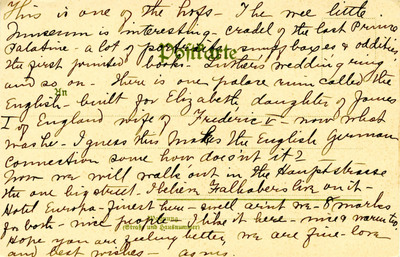 This is one of the hofs - The wee little
museum is interesting - cradel of the last Prince
Palatine - a lot of snuff boxes & oddities
the first printed book - Luthers wedding ring
Postkarte
and so on - There is one palace ruin called the
An
English - built for Elizabeth, daughter of James
I of England wife of Frederic V - now what
was he - I guess this makes the English German
connection some how doesn't it?
Now we will walk out in the Hauptstrasse
the one big street. Helen live on it -
Hotel Europa - finest here - swell aint we - 8 marks
for both - nice people - I like it here - nice & warm too,
(Straße und Hausnummer)
Hope you are feeling better, we are fine - love
and best wishes -